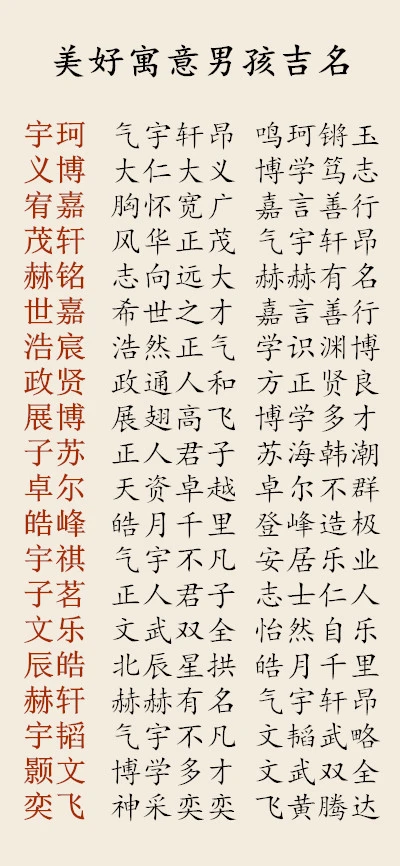 美好寓意男孩吉名
宇珂 气宇轩昂 鸣珂锵玉
义博 大仁大义 博学笃志
宥嘉 胸怀宽广 嘉言善行
茂轩 风华正茂 气宇轩昂
赫铭 志向远大 赫赫有名
世嘉 希世之才 嘉言善行
浩宸 浩然正气 学识渊博
政贤 政通人和 方正贤良
展博 展翅高飞 博学多才
子苏 正人君子 苏海韩潮
卓尔 天资卓越 卓尔不群
皓峰 皓月千里 登峰造极
宇祺 气宇不凡 安居乐业
子茗 正人君子 志士仁人
文乐 文武双全 怡然自乐
辰皓 北辰星拱 皓月千里
赫轩 赫赫有名 气宇轩昂
宇韬 气宇不凡 文韬武略
颢文 博学多才 文武双全
奕飞 神采奕奕 飞黄腾达